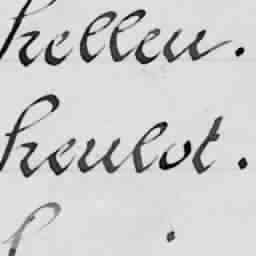 hellen.
heulot.